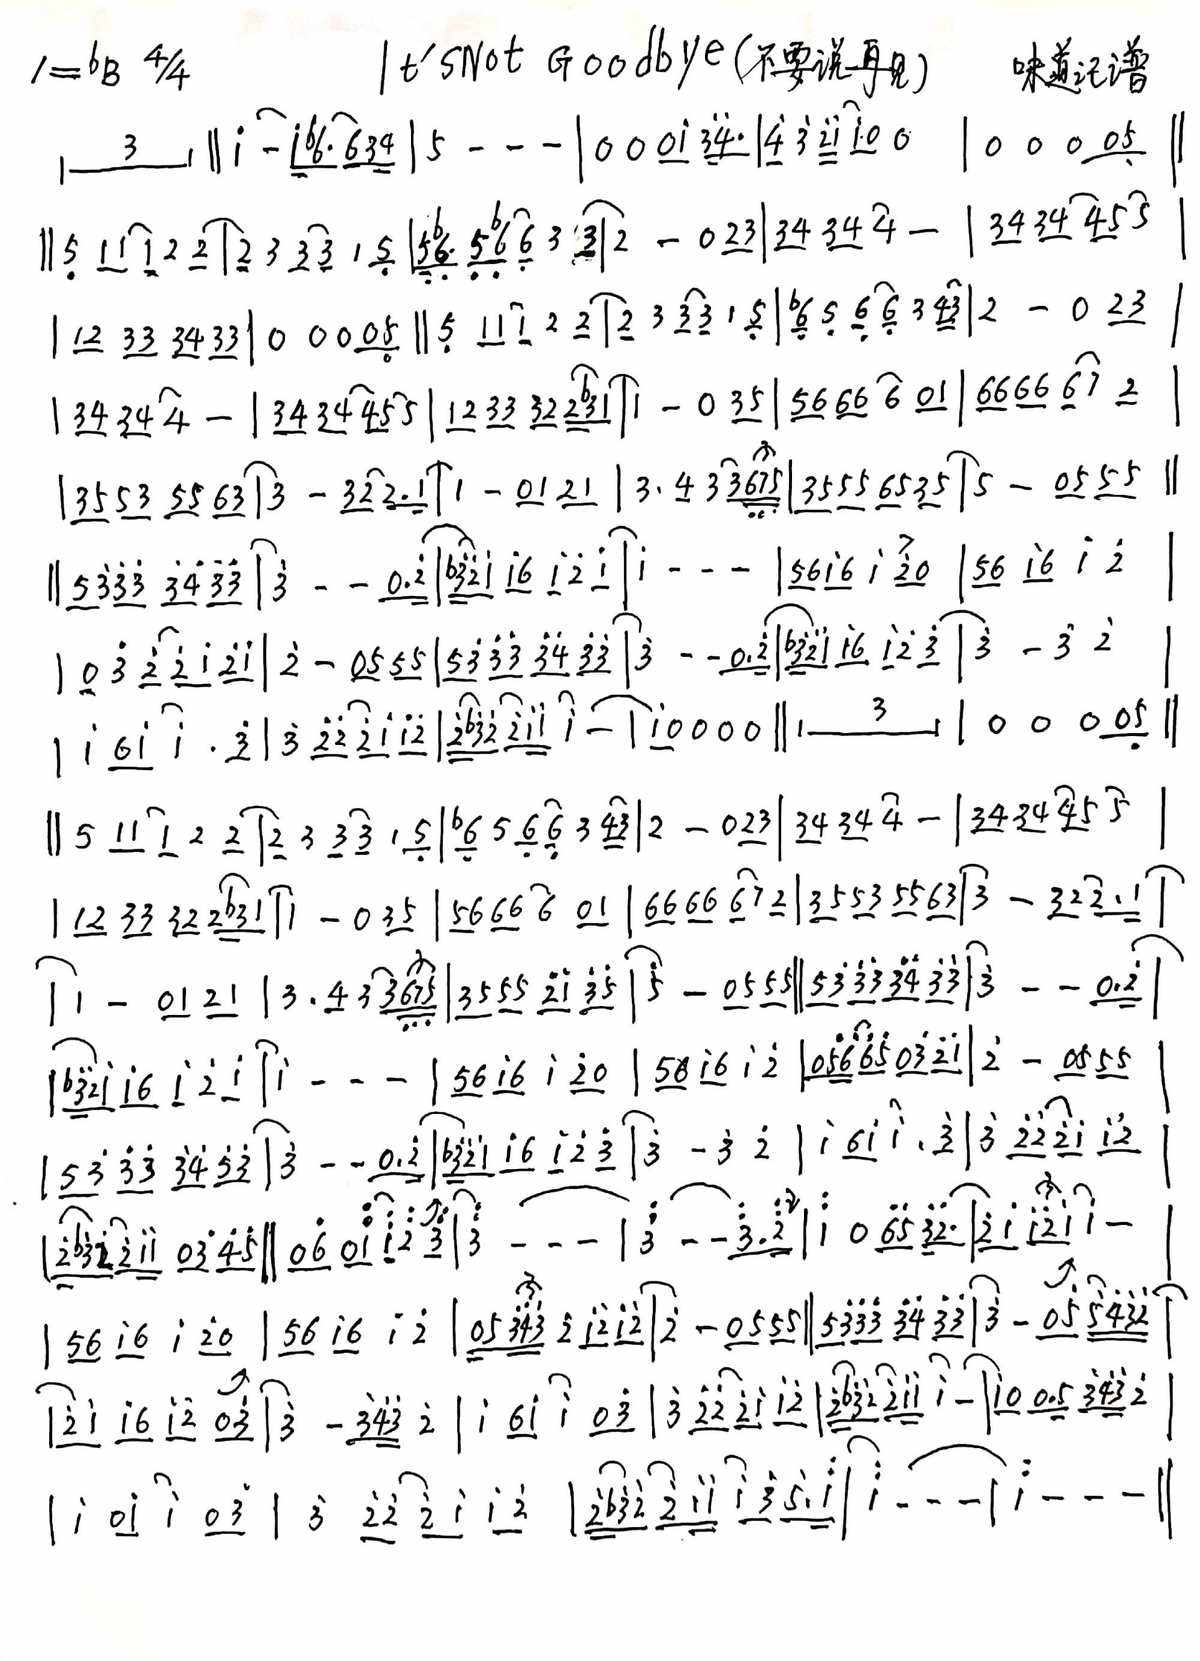 1=bB 4/4 It'SNot Goodbye(不要说再见) 味道记谱
| 3 | ‖ i - i b6. 6 3 4 | 5 - - - | 0 0 0i 34. | 4 3 2i i.0 0 | 0 0 0 05 ‖
‖ 5 11 1 2 2 | 2 3 3 3 1 5 | 5b6. 5b6 6 3 3 | 2 - 0 23 | 34 34 4 - | 34 34 45 5 |
| 12 33 34 33 | 0 0 0 05 ‖ 5 11 1 2 2 | 2 3 3 3 1 5 | b6 5 6 6 3 43 | 2 - 0 23 |
| 34 34 4 - | 34 34 45 5 | 12 33 32 2b31 | 1 - 0 35 | 56 66 6 01 | 66 66 6 7 2 |
| 35 53 55 63 | 3 - 32 2.1 | 1 - 01 21 | 3. 4 3 3675 | 35 55 65 35 | 5 - 05 55 ‖
‖ 53 33 34 33 | 3 - - 0.2 | b321 i6 i 2 i | i - - - | 56 i6 i 20 | 56 i6 i 2 |
| 0 3 2 2 i 2i | 2 - 05 55 | 53 33 34 33 | 3 - - 0.2 | b321 i6 i 2 3 | 3 - 3 2 |
| i 6i i . 3 | 3 22 2i i2 | 2b32 2ii i - | i 0 0 0 0 ‖ 3 | 0 0 0 05 ‖
‖ 5 11 1 2 2 | 2 3 3 3 1 5 | b6 5 6 6 3 43 | 2 - 0 23 | 34 34 4 - | 34 34 45 5 |
| 12 33 32 2b31 | 1 - 0 35 | 56 66 6 01 | 66 66 6 7 2 | 35 53 55 63 | 3 - 32 2.1 |
| 1 - 01 21 | 3 . 4 3 3675 | 35 55 2i 35 | 5 - 05 55 ‖ 53 33 34 33 | 3 - - 0.2 |
| b321 i6 i 2 i | i - - - | 56 i6 i 20 | 56 i6 i 2 | 056 65 03 2i | 2 - 05 55 |
| 53 33 34 33 | 3 - - 0.2 | b321 i6 i 2 3 | 3 - 3 2 | i 6i i . 3 | 3 22 2i i2 |
| 2b32 2ii 03 45 ‖ 06 0i i 2 3 | 3 - - - | 3 - - 3.2 | i 0 65 32. | 2 i i2i i - |
| 56 i6 i 20 | 56 i6 i 2 | 05 343 2 i2 i2 | 2 - 05 55 ‖ 53 33 34 33 | 3 - 05 5432 |
| 2i i6 i2 03 | 3 - 343 2 | i 6i i 03 | 3 22 2i i2 | 2b32 2ii i - | i0 0.5 343 2 |
| i 0i i 03 | 3 22 2 i i 2 | 2b32 2.ii i 3 5.i | i - - - | i - - - ‖